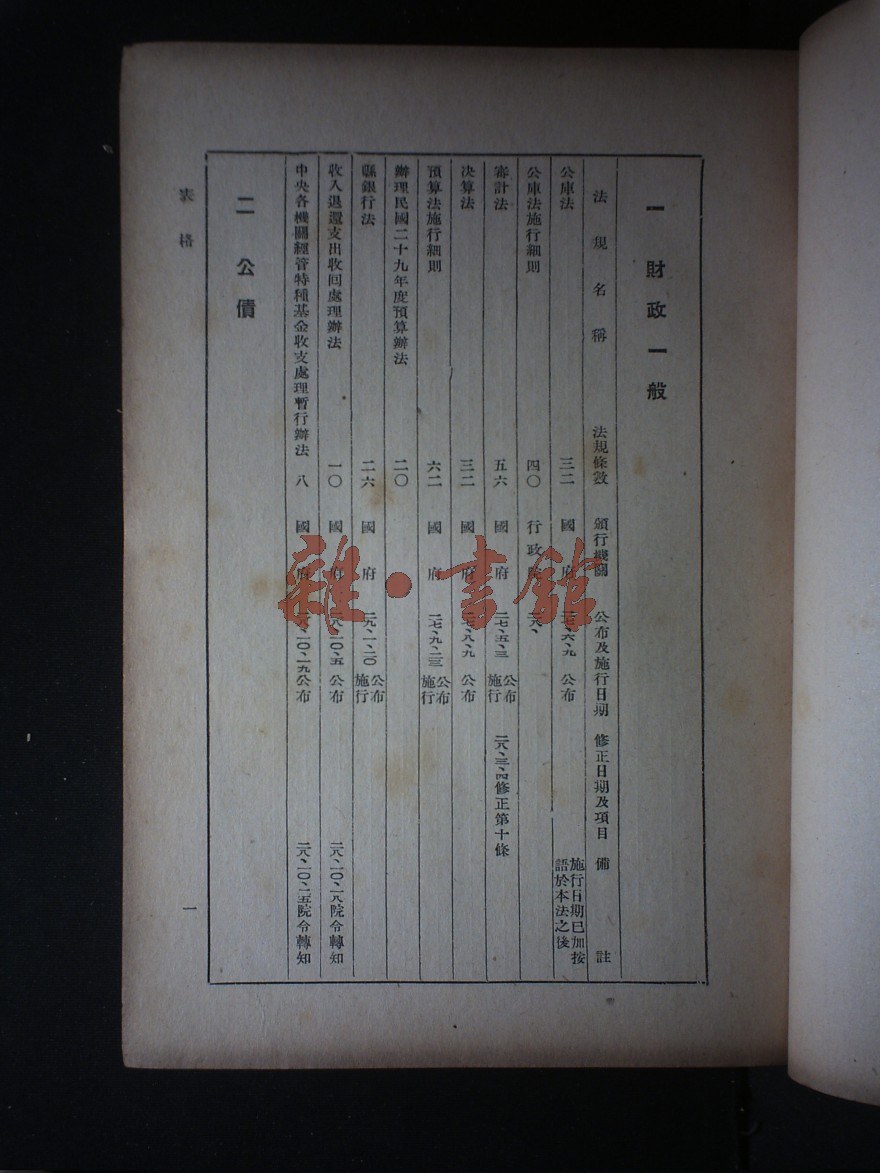 一 財政一般
法規名稱 法規條數 頒行機關 公布及施行日期 修正日期及項目 備註
公庫法 三二 國府 二七、六、九 公布 施行日期已加按語於本法之後
公庫法施行細則 四〇 行政院 二八、
審計法 五六 國府 二七、五、三 公布施行 二八、三、四修正第十條
決算法 三二 國府 二七、八、九 公布
預算法施行細則 六二 國府 二七、九、二三 公布施行
辦理民國二十九年度預算辦法 二〇
縣銀行法 二六 國府 二九、一、二〇 公布施行
收入退還支出收回處理辦法 一〇 國府 二八、一〇、五 公布 二八、一〇、二八院令轉知
中央各機關經管特種基金收支處理暫行辦法 八 國府 二八、一〇、一九公布 二八、一〇、二五院令轉知
二 公債
表格
一
雜·書館